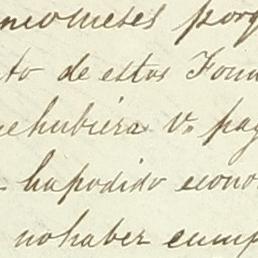 porq
to de estos Fon
ehubiera V. pag
hapodido econo
nohaber cump